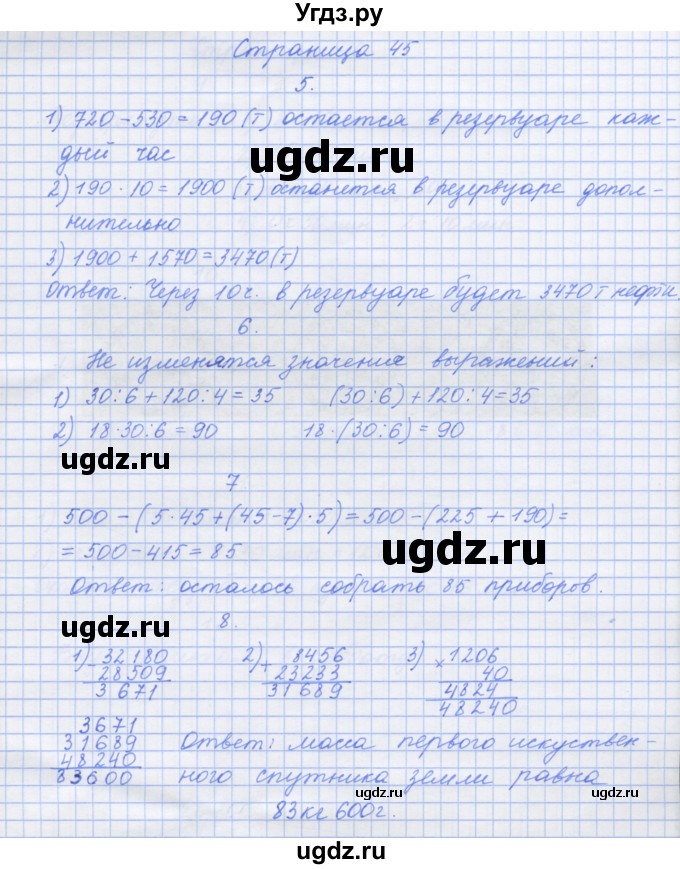 Угдз.ру
Страница 45
5.
1) 720 - 530 = 190 (т) остается в резервуаре каж-
дый час
ugdz.ru
2) 190 · 10 = 1900 (т) останется в резервуаре допол-
нительно
3) 1900 + 1570 = 3470 (т)
Ответ: Через 10 ч. в резервуаре будет 3470 т нефти.
6.
Не изменятся значения выражений:
1) 30 : 6 + 120 : 4 = 35 (30 : 6) + 120 : 4 = 35
2) 18 · 30 : 6 = 90 18 · (30 : 6) = 90
ugdz.ru
7
500 - (5 · 45 + (45 - 7) · 5) = 500 - (225 + 190) =
= 500 - 415 = 85
ugdz.ru
Ответ: осталось собрать 85 приборов.
8.
1) - 32180 2) + 8456 3) × 1206
28509 23233 40
3671 31689 4824
48240
3671
31689 Ответ: масса первого искуствен-
48240
83600 ного спутника земли равна
83 кг 600 г.
ugdz.ru
ugdz.ru
ugdz.ru